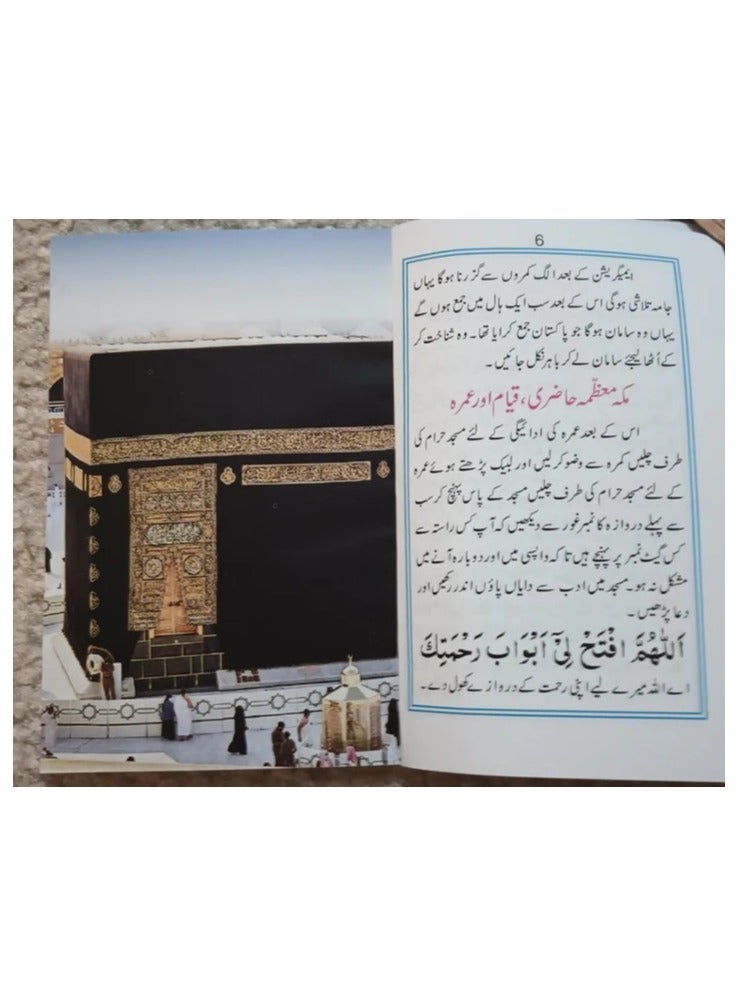 6
ایمیگریشن کے بعد الگ کمروں سے گزرنا ہوگا یہاں
جامہ تلاشی ہوگی اس کے بعد سب ایک ہال میں جمع ہوں گے
یہاں وہ سامان ہوگا جو پاکستان جمع کرایا تھا۔ وہ شناخت کر
کے اُٹھا لیجئے سامان لے کر باہر نکل جائیں۔
مکہ معظّمہ حاضری، قیام اور عمرہ
اس کے بعد عمرہ کی ادائیگی کے لئے مسجد حرام کی
طرف چلیں کمرہ سے وضو کرلیں اور لبیک پڑھتے ہوئے عمرہ
کے لئے مسجد حرام کی طرف چلیں مسجد کے پاس پہنچ کر سب
سے پہلے دروازہ کا نمبر غور سے دیکھیں کہ آپ کس راستہ سے
کس گیٹ نمبر پر پہنچے ہیں تاکہ واپسی میں اور دوبارہ آنے میں
مشکل نہ ہو۔ مسجد میں ادب سے دایاں پاؤں اندر رکھیں اور
دعا پڑھیں۔
اَللّٰهُمَّ افْتَحْ لِیْٓ اَبْوَابَ رَحْمَتِكَ
اے اللہ میرے لیے اپنی رحمت کے دروازے کھول دے۔